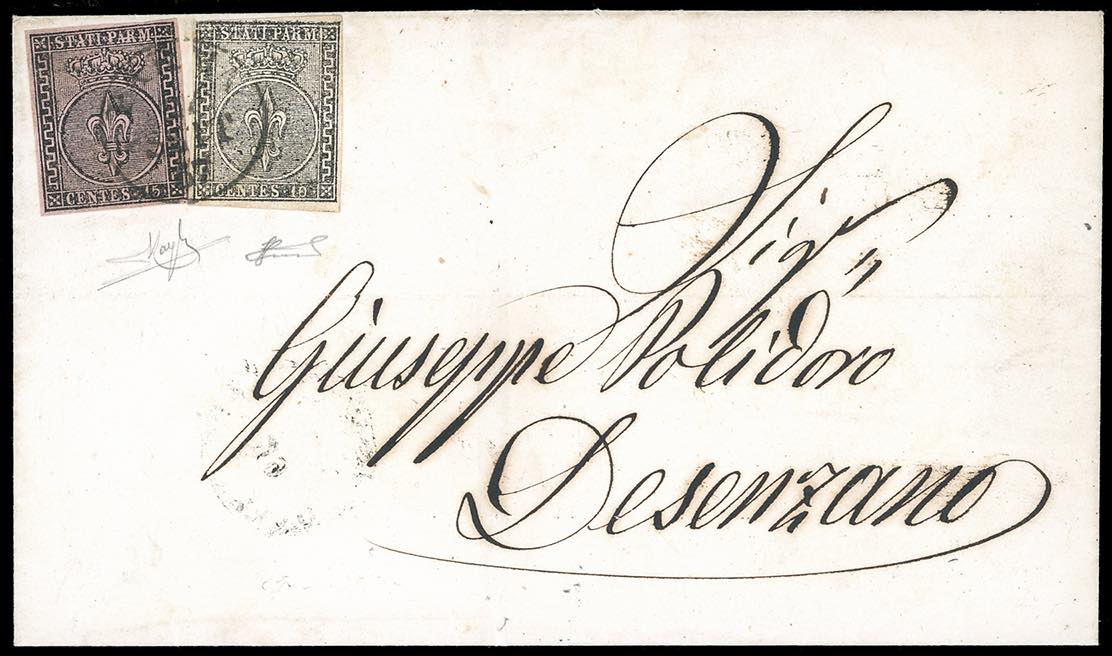 STATI PARM
CENTES 15
STATI PARM
CENTES 10
Sig.r
Giuseppe Polidoro
Desenzano